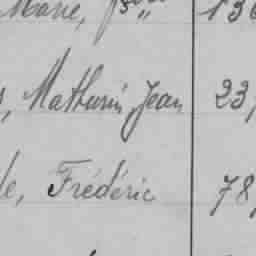 Marie,
, Mathurin Jean 23,
le, Frédéric 78,